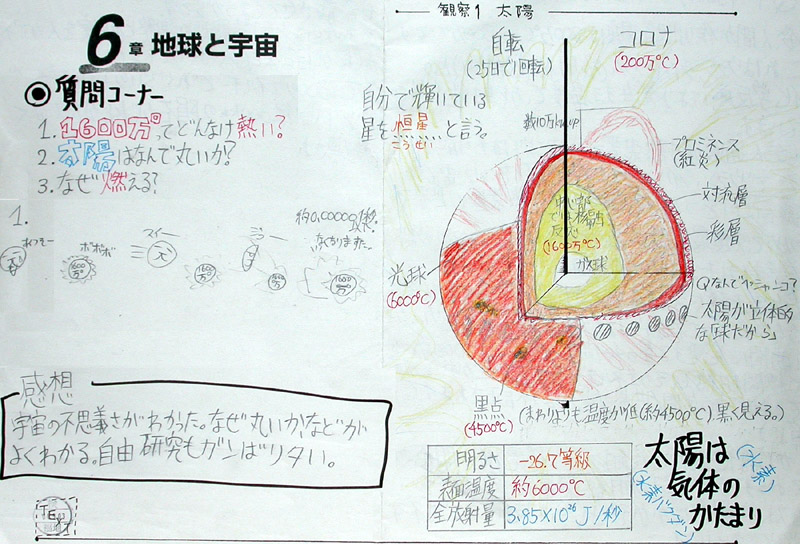 6章 地球と宇宙
質問コーナー
1. 1600万°ってどんなけ熱い?
2. 太陽はなんで丸いか?
3. なぜ燃える?
1.
ボボボ
マイー
なくなりました
感想
宇宙の不思議さがわかった。なぜ丸いか、などが
よくわかる。自由研究もガンばりタい。
観察1 太陽
自転
(25日で1回転)
コロナ
(200万℃)
自分で輝いている
星を恒星と言う。
こうせい
プロミネンス
(紅炎)
対流層
彩層
中心部
では核融合
反応
(1600万℃)
ガス球
光球
(6000℃)
太陽が立体的
な球だから」
黒点
(4500℃)
(まわりよりも温度が低(約4500℃)黒く見える。)
明るさ -26.7等級
表面温度 約6000℃
全放射量 3.85×10²⁶ J/秒
太陽は
(水素)
気体の
かたまり